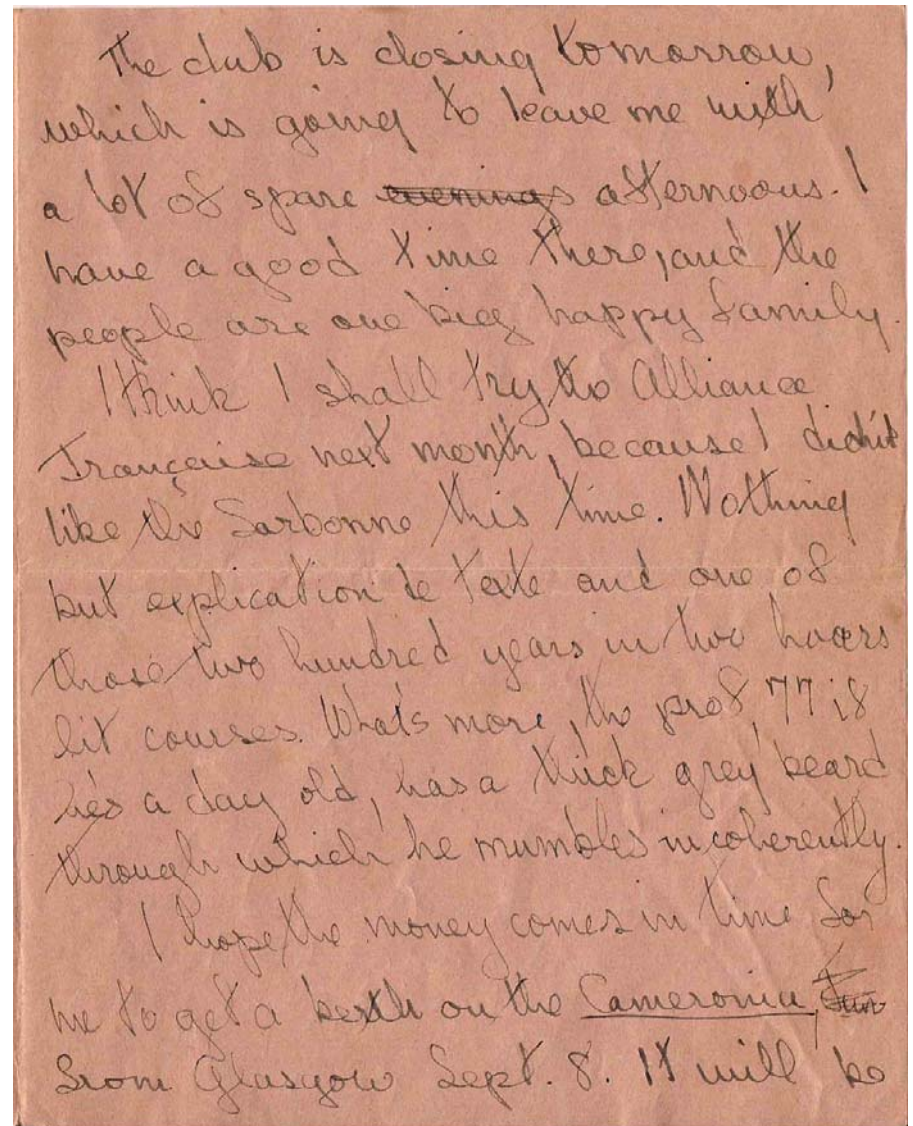 The club is closing tomorrow,
which is going to leave me with
a lot of spare evenings afternoons. I
have a good time there, and the
people are one big happy family.
I think I shall try the Alliance
Française next month, because I didn't
like the Sorbonne this time. Nothing
but explication de texte and one of
those two hundred years in two hours
lit courses. What's more, the prof, 77 if
he's a day old, has a thick grey beard
through which he mumbles incoherently.
I hope the money comes in time for
me to get a berth on the Cameronia,
from Glasgow Sept. 8. It will be